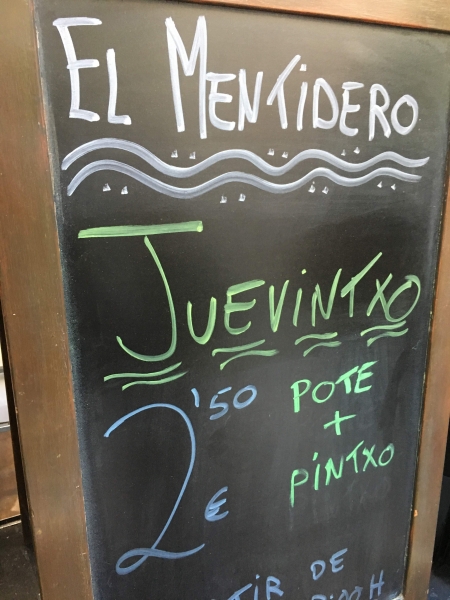 EL MENTIDERO
JUEVINTXO
2'50 € POTE
+
PINTXO
TIR DE